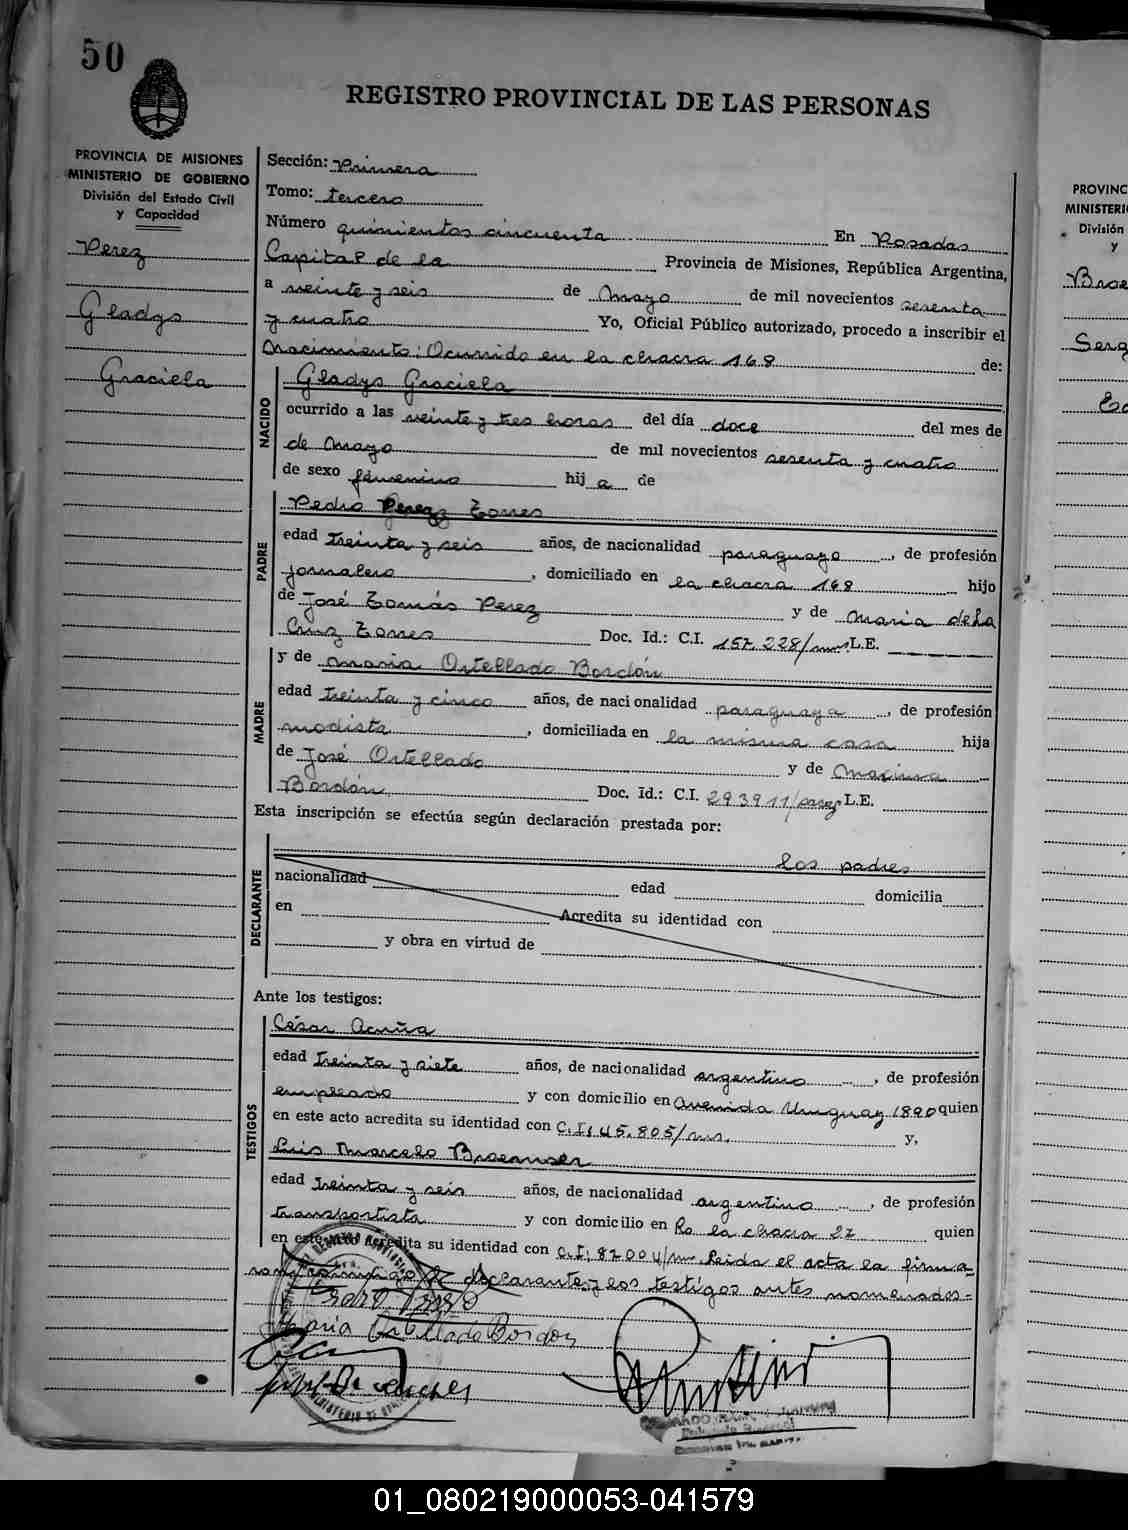 50
REGISTRO PROVINCIAL DE LAS PERSONAS
PROVINCIA DE MISIONES
MINISTERIO DE GOBIERNO
División del Estado Civil
y Capacidad
Perez
Gladys
Graciela
Sección: Primera
Tomo: tercero
Número quinientos cincuenta En Posadas
Capital de la Provincia de Misiones, República Argentina,
a veinte y seis de Mayo de mil novecientos sesenta
y cuatro Yo, Oficial Público autorizado, procedo a inscribir el
Nacimiento: Ocurrido en la chacra 168 de:
NACIDO
Gladys Graciela
ocurrido a las veinte y tres horas del día doce del mes de
de Mayo de mil novecientos sesenta y cuatro
de sexo femenino hij a de
PADRE
Pedro Perez Torres
edad treinta y seis años, de nacionalidad paraguayo, de profesión
jornalero, domiciliado en la chacra 168 hijo
de José Tomás Perez y de Maria de la
Cruz Torres Doc. Id.: C.I. 157.228/mnes L.E.
MADRE
y de Maria Ortellado Bordón
edad treinta y cinco años, de nacionalidad paraguaya, de profesión
modista, domiciliada en la misma casa hija
de José Ortellado y de Macima
Bordón Doc. Id.: C.I. 293911/parag L.E.
Esta inscripción se efectúa según declaración prestada por:
DECLARANTE
los padres
nacionalidad edad domicilia
en Acredita su identidad con
y obra en virtud de
Ante los testigos:
TESTIGOS
César Acuña
edad treinta y siete años, de nacionalidad argentino, de profesión
empleado y con domicilio en Avenida Uruguay 1890 quien
en este acto acredita su identidad con C.I: 45.805/ms. y,
Luis Marcelo Braemser
edad treinta y seis años, de nacionalidad argentino, de profesión
transportista y con domicilio en la chacra 27 quien
en este acto acredita su identidad con C.I: 87004/ms. Leida el acta la firma-
ron conmigo los declarantes y los testigos antes nomenados=
Maria Ortellado Bordon
PROVINC
MINISTERI
División
y
Brae
Serg
01_080219000053-041579